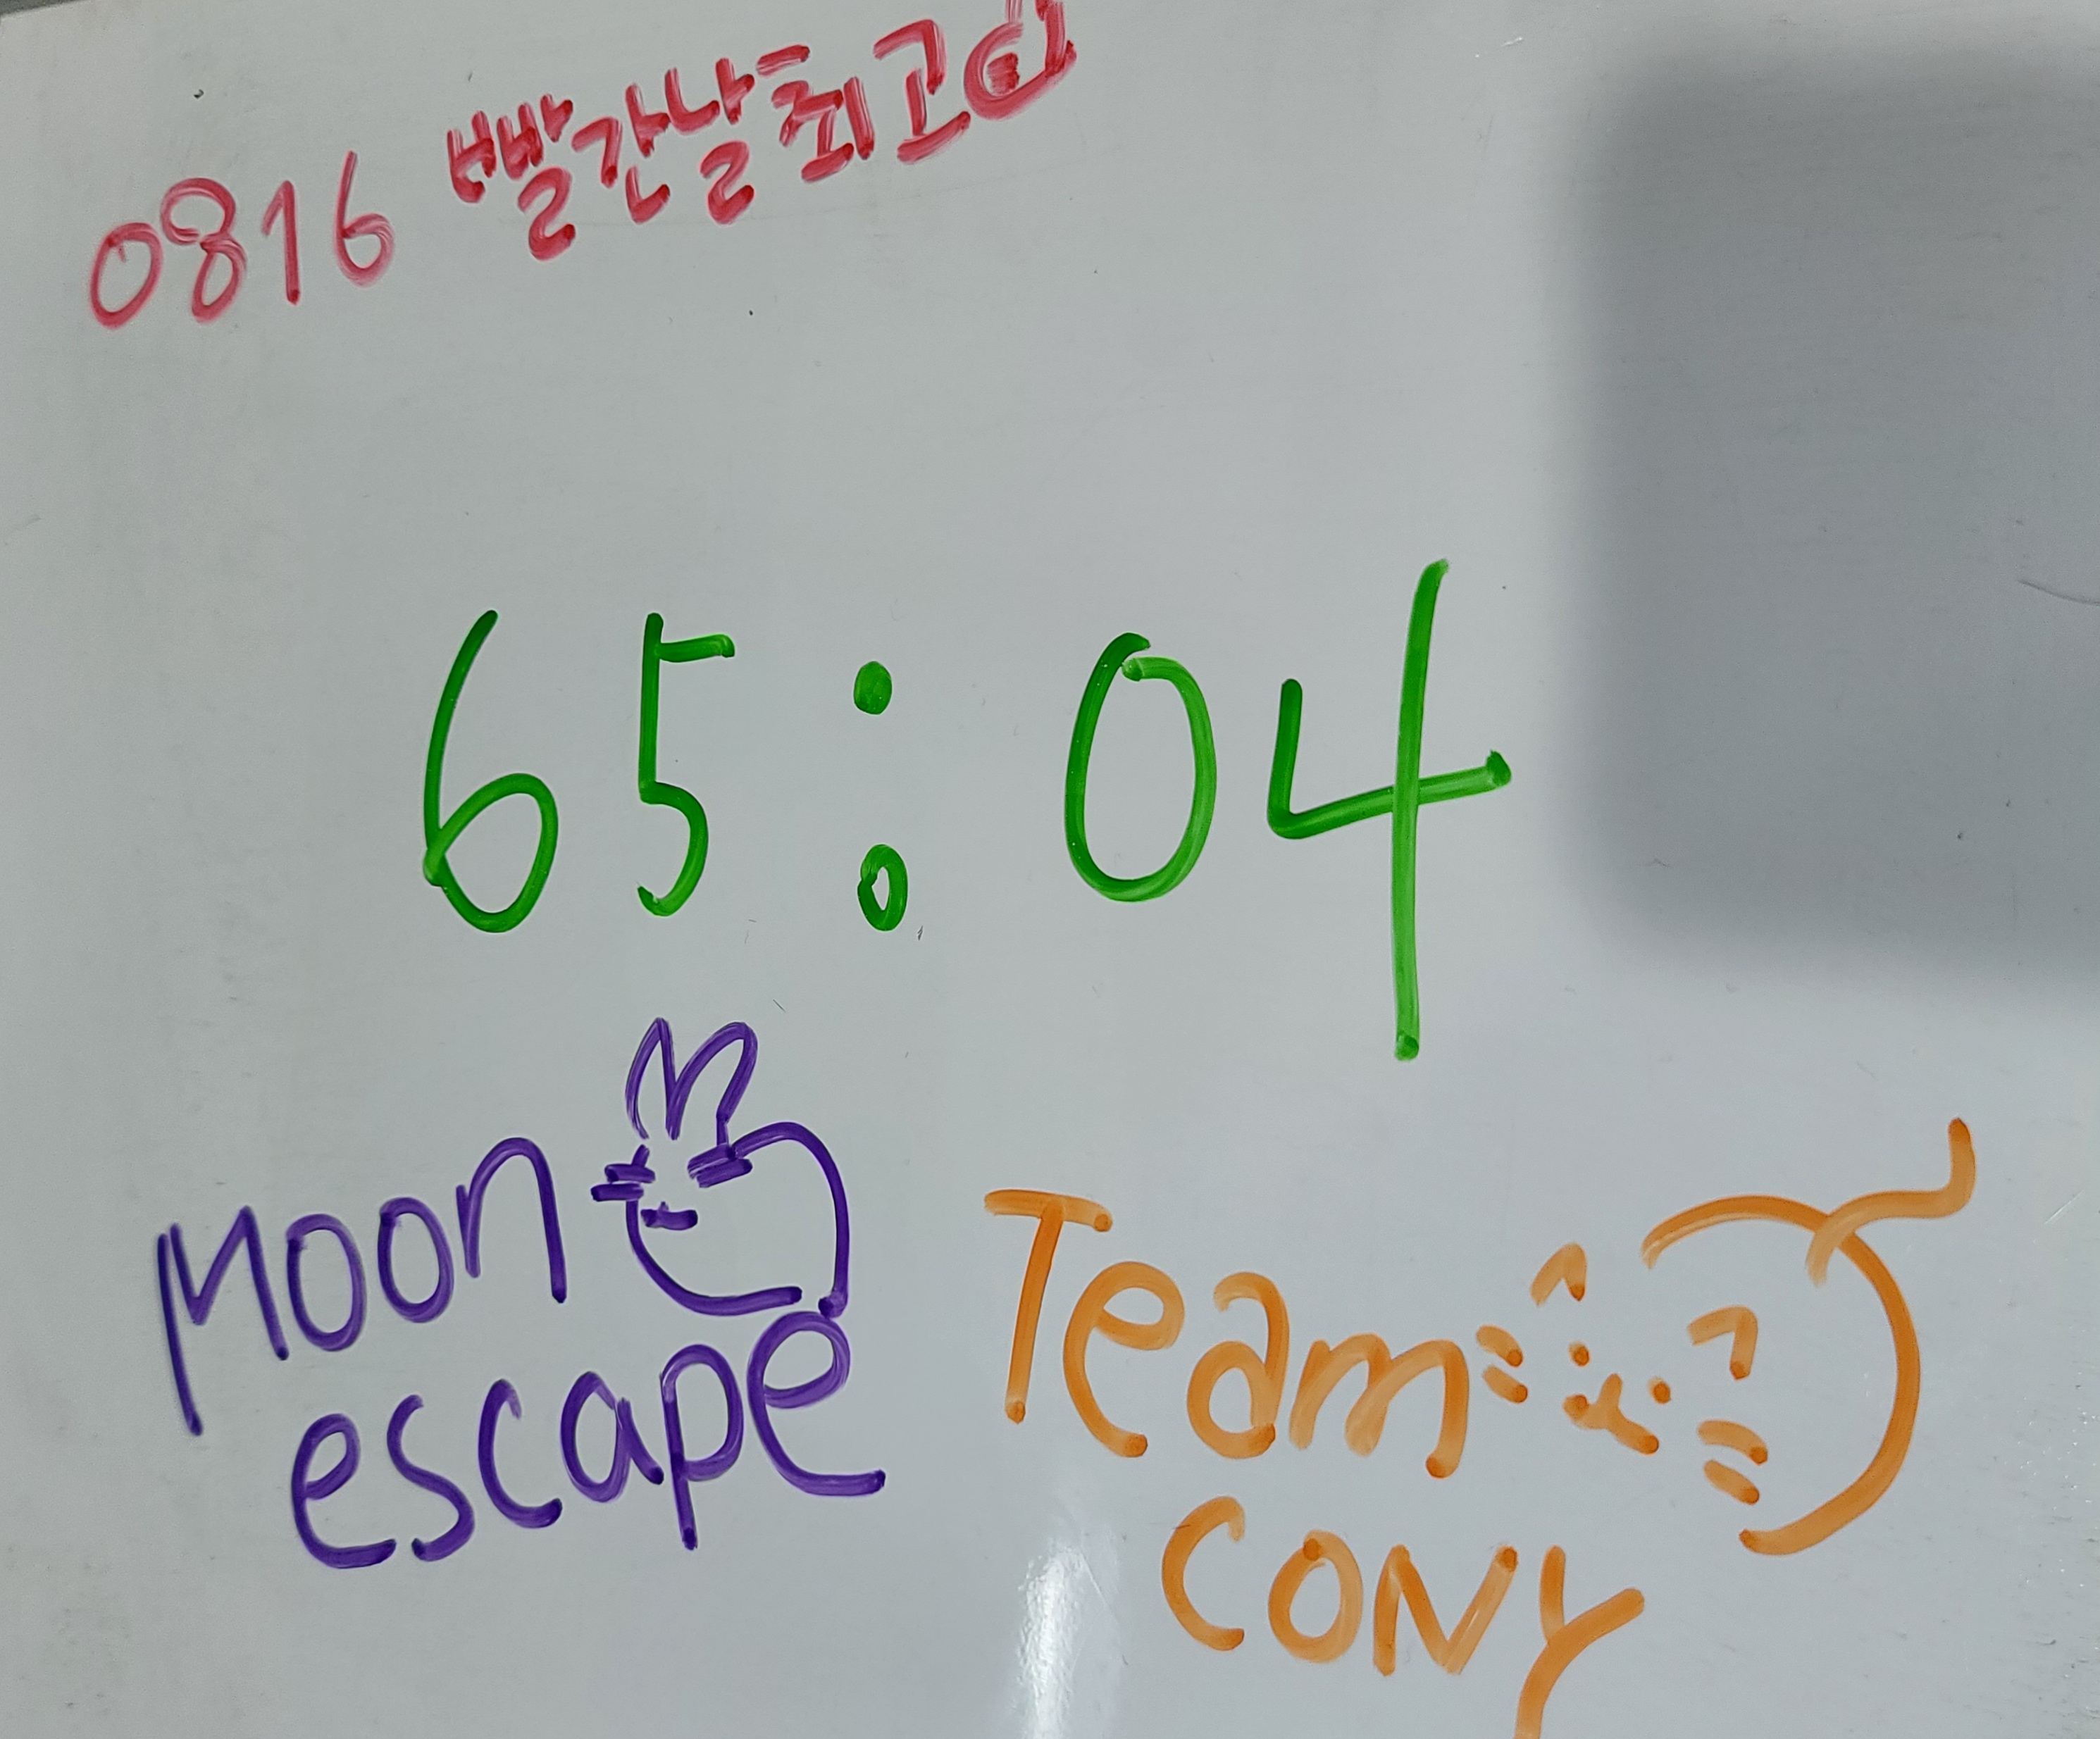 0816 빨간날 최고
65:04
Moon
escape
Team
CONY